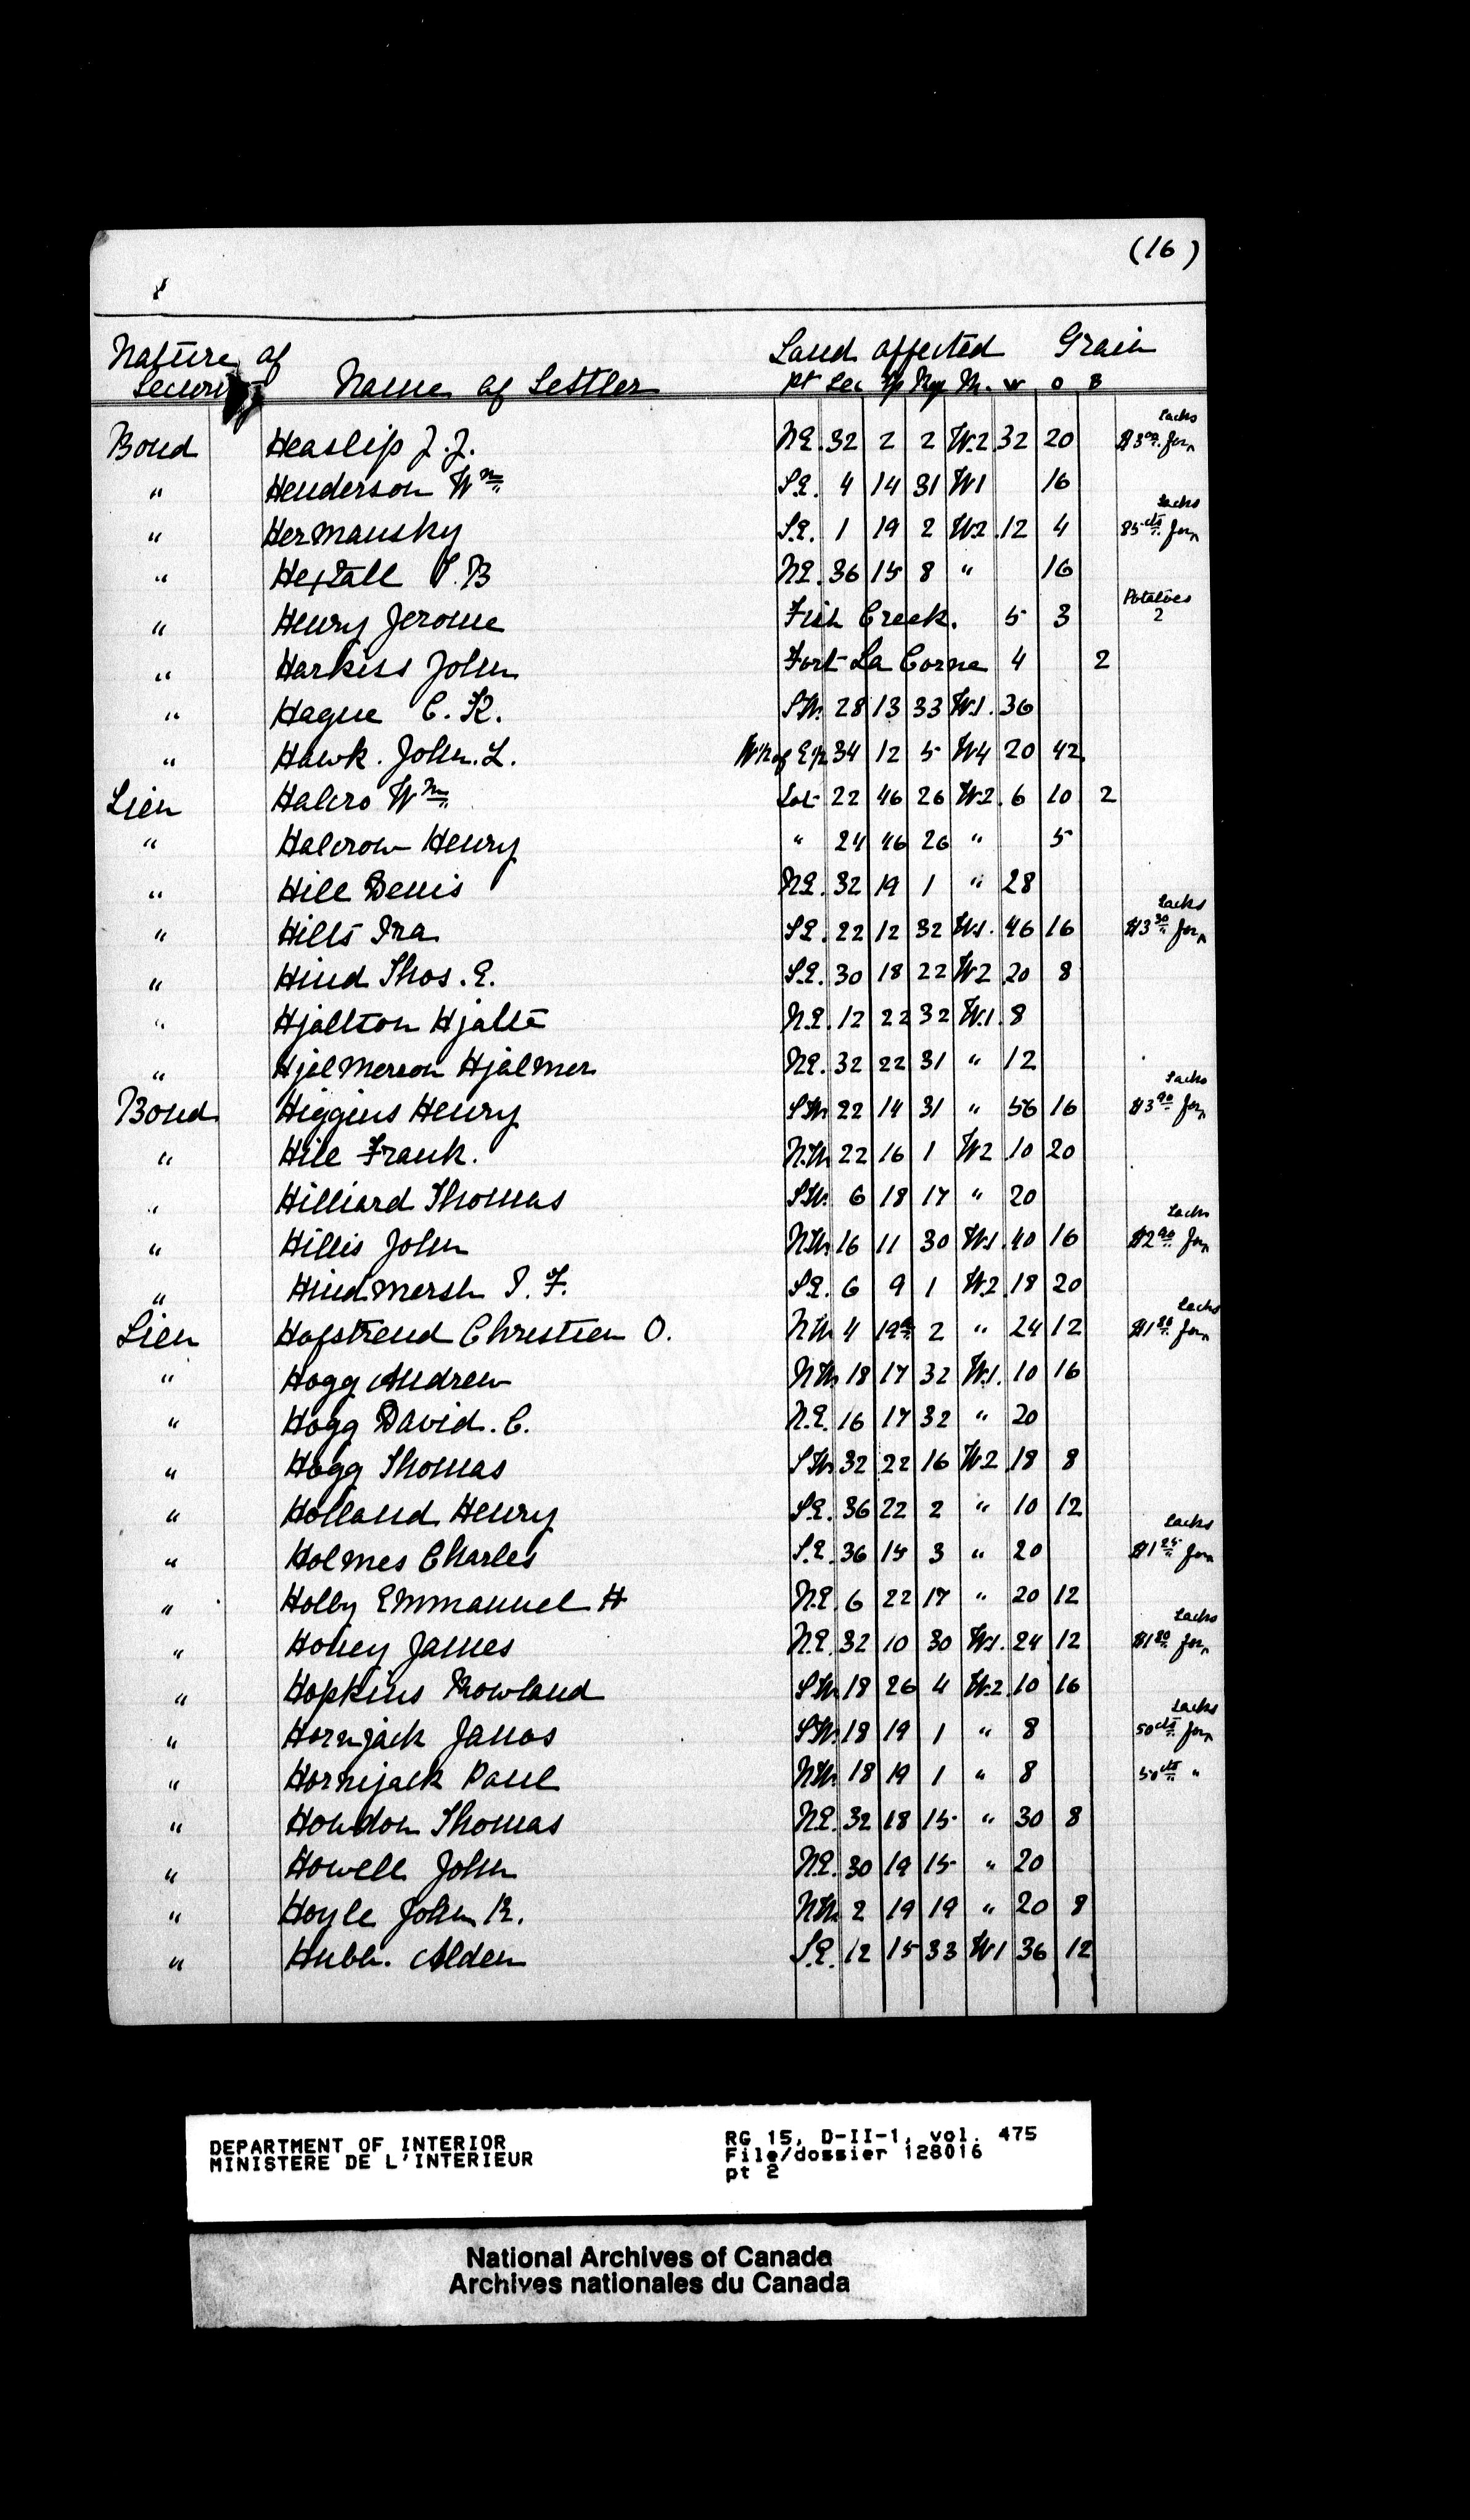 (16)
Nature of Land affected Grain
Security Name of Settler Pt Sec Tp Rge M. W O B
Bond Heaslip J. J. N.E. 32 2 2 W.2 32 20 $3 for Sacks
" Henderson Wm S.E. 4 14 31 W1 16
" Hermansky S.E. 1 19 2 W2 12 4 85 cts for Sacks
" Hextall P. B N.E. 36 15 8 " 16
" Henry Jerome Fish Creek. 5 3 Potatoes 2
" Harkiss John Fort La Corne 4 2
" Hague C. K. S.W. 28 13 33 W1. 36
" Hawk. John. L. W½ of E½ 34 12 5 W4 20 42
Lien Halcro Wm Lot 22 46 26 W2. 6 10 2
" Halcrow Henry " 24 46 26 " 5
" Hill Denis N.E. 32 19 1 " 28
" Hills Ira S.E. 22 12 32 W1. 46 16 $3 30 for Sacks
" Hind Thos. E. S.E. 30 18 22 W2 20 8
" Hjallton Hjalte N.E. 12 22 32 W.1. 8
" Hjalmerson Hjalmer N.E. 32 22 31 " 12
Bond Higgins Henry S.W 22 14 31 " 56 16 $3 90 for Sacks
" Hill Frank. N.W 22 16 1 W2 10 20
" Hilliard Thomas S.W. 6 18 17 " 20
" Hillis John N.W 16 11 30 W1. 40 16 $2 90 for Sacks
" Hindmersh P. F. S.E. 6 9 1 W2 18 20
Lien Hofstrend Christien O. N W 4 19a 2 " 24 12 $1 80 for Sacks
" Hogg Andrew N W 18 17 32 W.1. 10 16
" Hogg David. C. N.E. 16 17 32 " 20
" Hogg Thomas S W 32 22 16 W2 18 8
" Holland Henry S.E. 36 22 2 " 10 12
" Holmes Charles S.E. 36 15 3 " 20 $1 25 for Sacks
" Holby Emmanuel H N.E. 6 22 17 " 20 12
" Honey James N.E. 32 10 30 W1. 24 12 $1 80 for Sacks
" Hopkins Rowland S W 18 26 4 W.2 10 16
" Hornjack Janos S.W. 18 19 1 " 8 50 cts for Sacks
" Hornijack Paul N.W. 18 19 1 " 8 50 cts "
" Houndon Thomas N.E. 32 18 15 " 30 8
" Howell John N.E. 30 19 15 " 20
" Hoyle John R. N.W. 2 19 19 " 20 8
" Hubb. Alden S.E. 12 15 33 W1 36 12
DEPARTMENT OF INTERIOR
MINISTERE DE L'INTERIEUR
RG 15, D-II-1, vol. 475
File/dossier 128016
pt 2
National Archives of Canada
Archives nationales du Canada